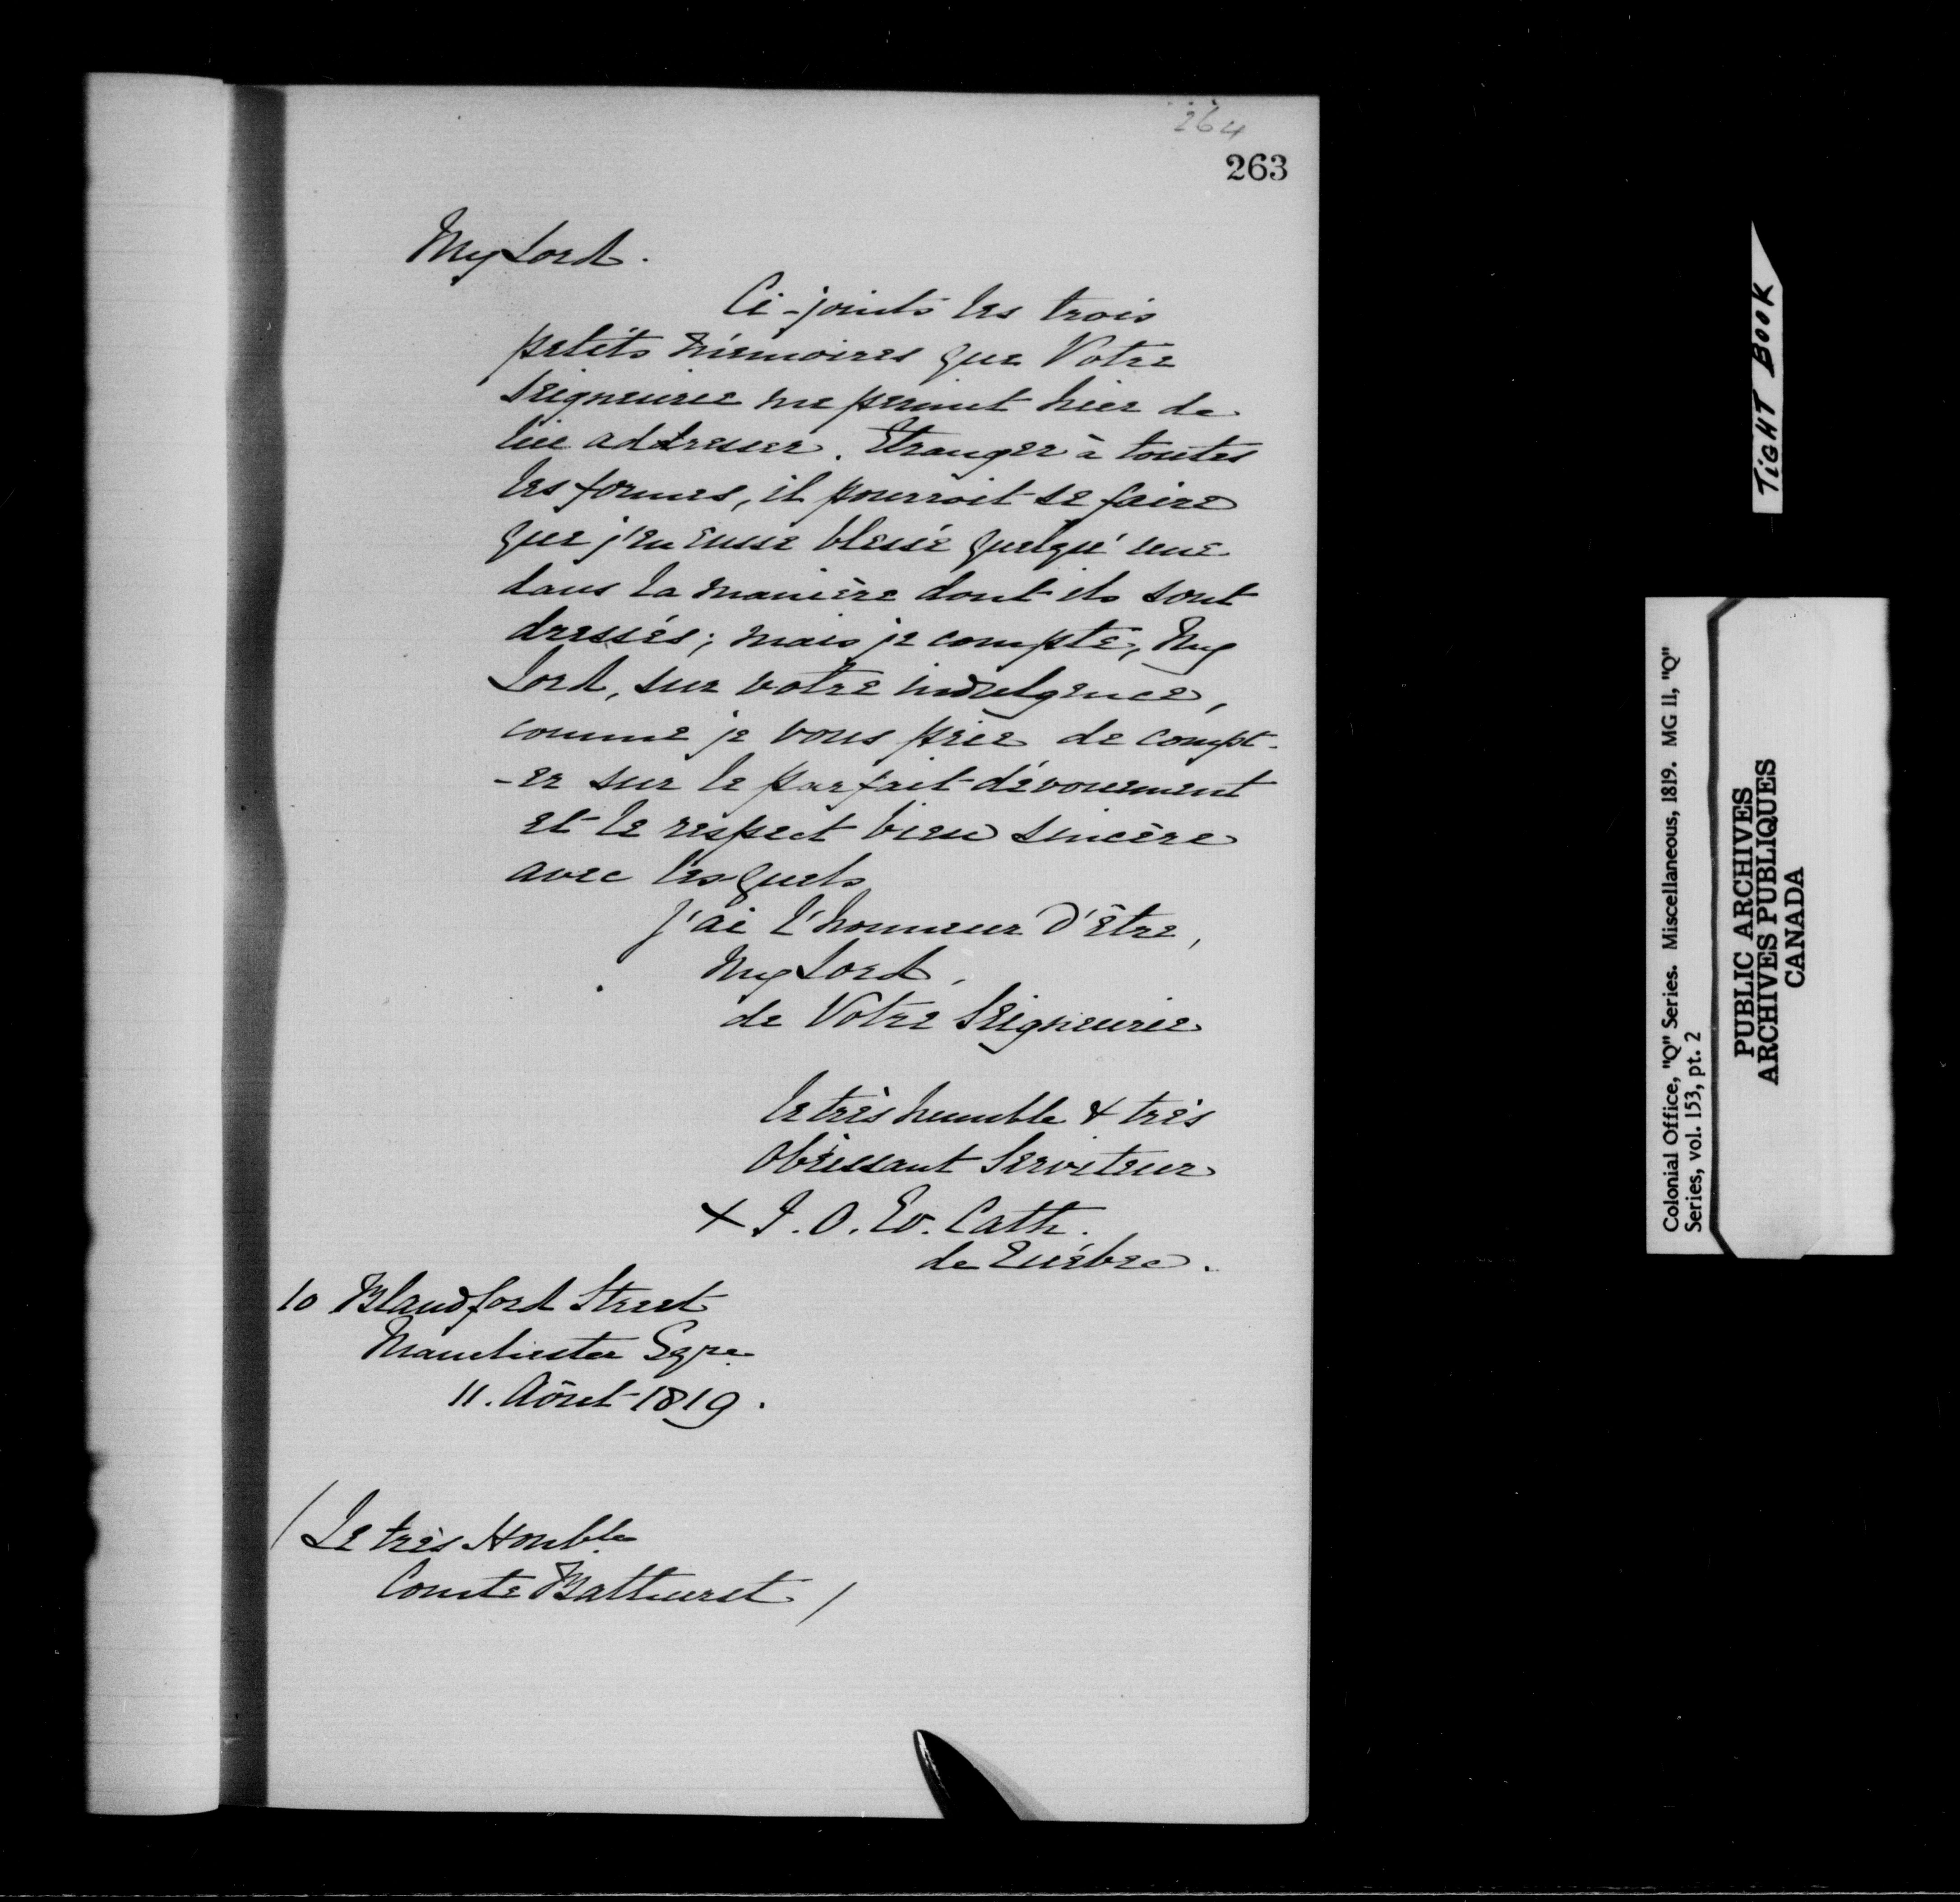 264
263
My Lord.
Ci-joints les trois
petits mémoires que Votre
Seigneurie me permit hier de
lui addresser. Etranger à toutes
les formes, il pourroit se faire
que j'en eusse blessé quelqu'une
dans la manière dont ils sont
dressés; mais je compte, My
Lord, sur votre indulgence,
comme je vous prie de compt-
-er sur le parfait dévouement
et le respect bien sincère
avec lesquels
J'ai l'honneur d'être,
My Lord,
de Votre Seigneurie
le très humble & très
obéissant Serviteur
+ J. O. Ev. Cath.
de Québec.
10 Blandford Street
Manchester Sqre
11. Aôut 1819.
/ Le très Honble
Comte Bathurst /
TIGHT BOOK
Colonial Office, "Q" Series. Miscellaneous, 1819. MG 11, "Q"
Series, vol. 153, pt. 2
PUBLIC ARCHIVES
ARCHIVES PUBLIQUES
CANADA